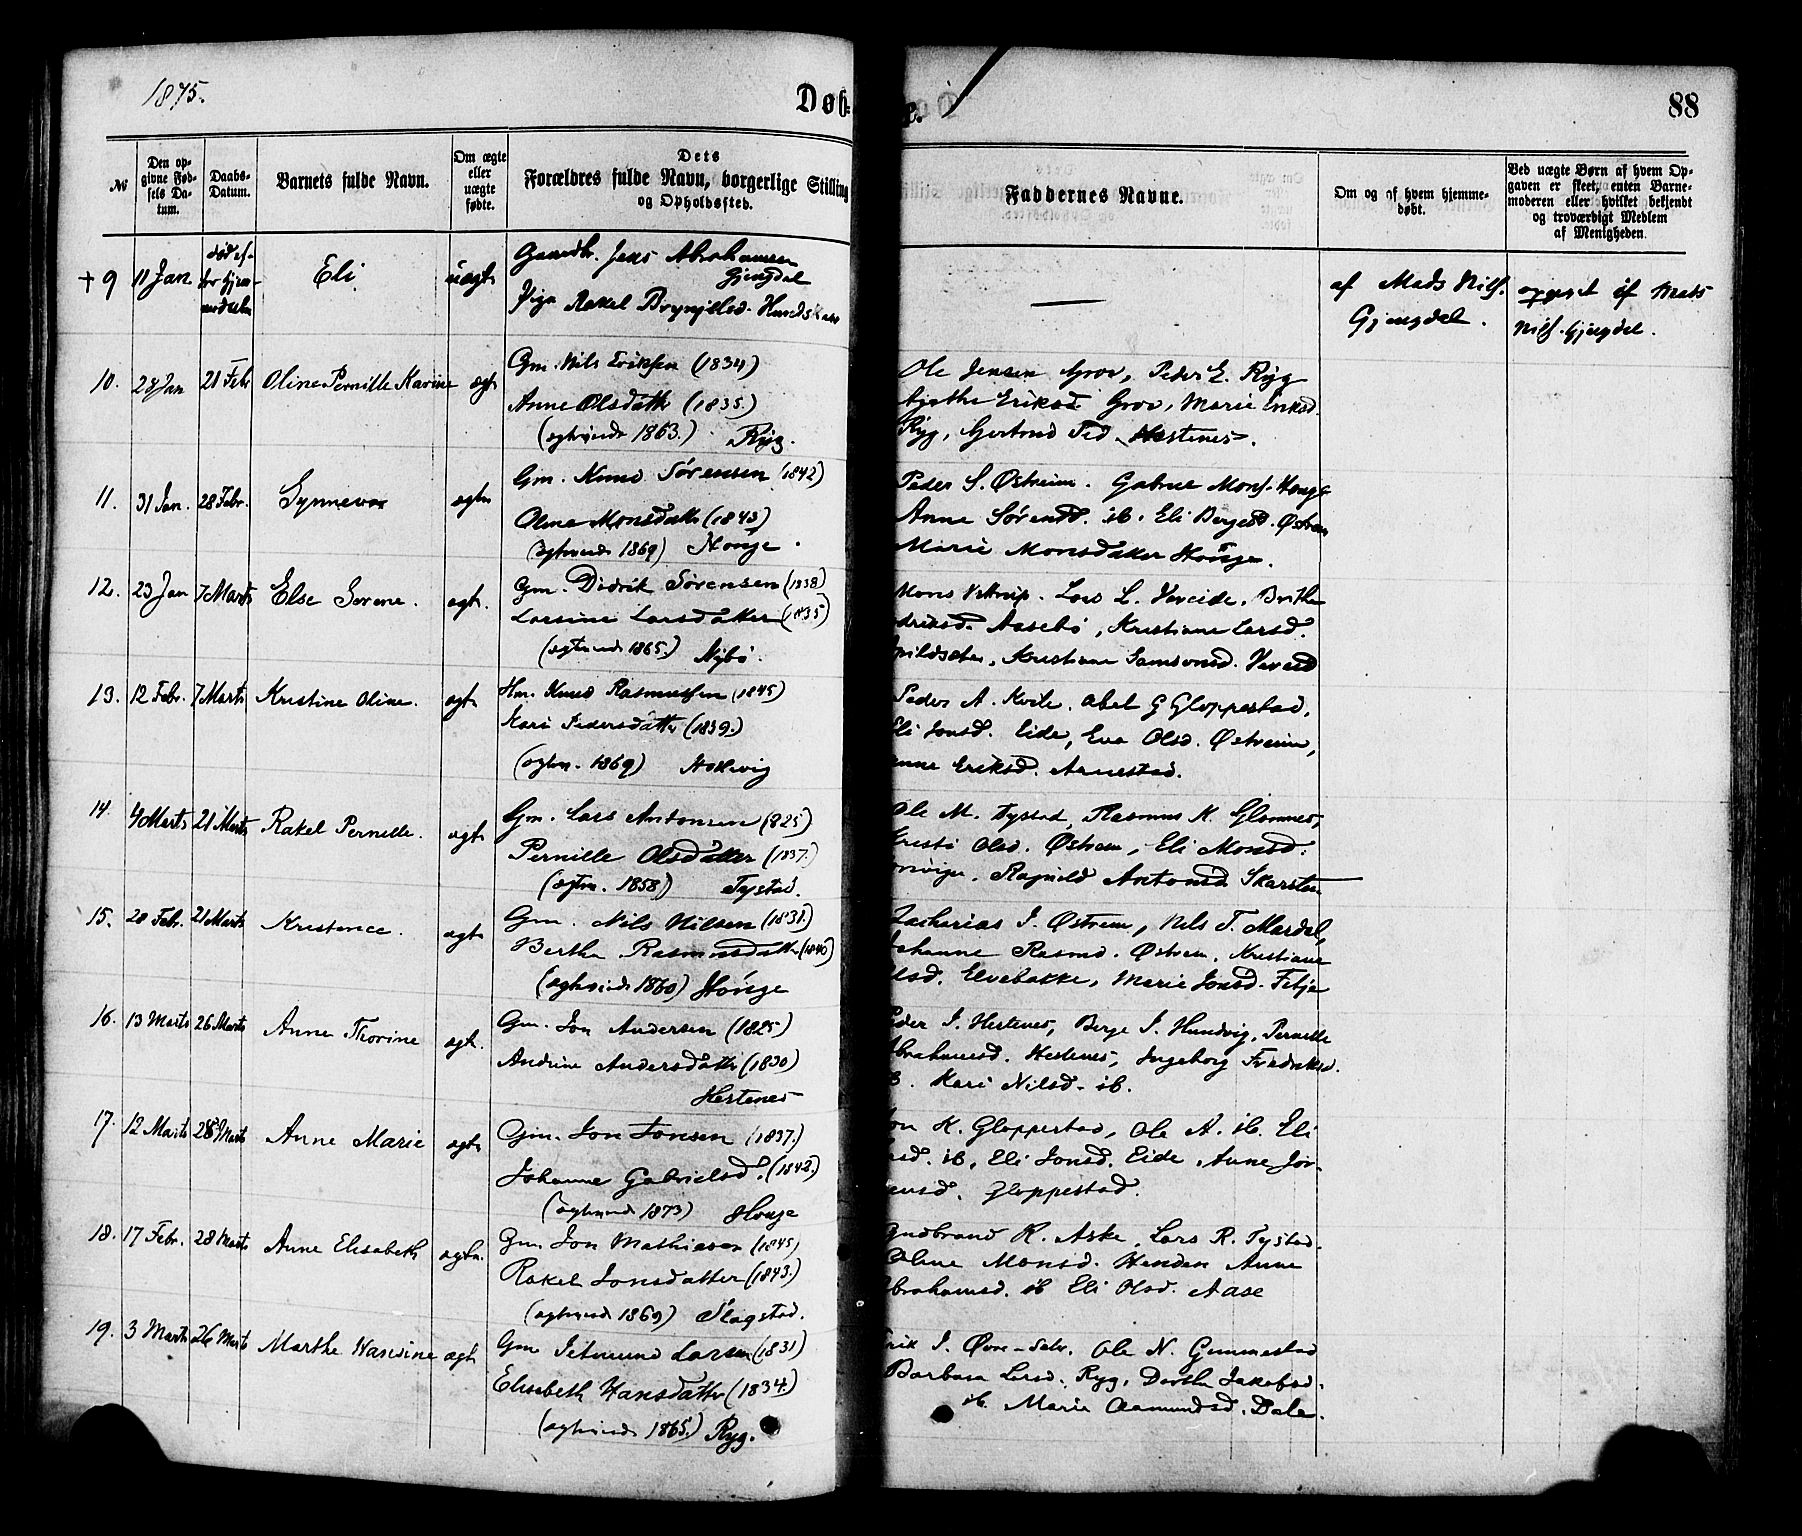 1875.
Døb=
88
№
Den op-
givne Fød-
sels Da-
tum.
Daabs-
Datum.
Barnets fulde Navn.
Om ægte
eller
uægte
fødte.
Dets
Forældres fulde Navn, borgerlige Stilling
og Opholdssted.
Faddernes Navne.
Om og af hvem hjemme-
døbt.
Ved uægte Børn af hvem Op-
gaven er skeet, enten Barne-
moderen eller hvilket bekjendt
og troværdigt Medlem
af Menigheden.
+ 9 11 Jan Eli uægte
Gaardbr. Jens Abrahamsen
Gjengdal
Pige Rakel Brynjelsd.
af Mads Nils.
Gjengdal.
af Mads
Nils. Gjengdal.
10. 28 Jan 21 Febr Oline Pernille Karine ægte
Gm. Nils Eriksen (1834)
Anne Olsdatter (1835.)
(ægteviede 1863.) Ryg.
Ole Jensen Grov, Peder E. Ryg
Agathe Eriksd Grov, Marie Eriksd.
Ryg, Gertrud Hestenes.
11. 31 Jan. 28 Febr. Synneva ægte
Gm. Knud Sørensen (1842)
Oline Monsdatter (1843)
(ægteviede 1869) Houge.
Peder S. Østreim. Gabriel Mons. Houge
Anne Sørensd. ib. Eli Bergesd. Østreim
Marie Monsdatter Houge.
12. 23 Jan 7 Marts Else Serene. ægte.
Gm. Didrik Sørensen (1838)
Larsine Larsdatter (1835)
(ægteviede 1865.) Nybø.
Mons Lars L. Hereide. Brithe
Aasebø, Kristiane Larsd.
Kristiane Samsonsd.
13. 12 Febr. 7 Marts Kristine Oline. ægte
Hm. Knud Rasmussen (1845)
Kari Pedersdatter (1839.)
(ægtev. 1869) Nordvig
Peder A. Kvile. Abel G Gloppestad,
Eli Jonsd. Eide, Eva Olsd. Østreim,
Anne Eriksd. Arnestad.
14. 4 Marts 21 Marts Rakel Pernille. ægte
Gm. Lars Antonsen (1825)
Pernille Olsdatter (1837.)
(ægtev. 1858) Tystad.
Ole M. Tystad, Rasmus K. Glomnes,
Olsd. Østreim, Eli Monsd.
Ragnild Antonsd Skarsten
15. 20 Febr. 21 Marts Kristence. ægte
Gm. Nils Nilsen (1831.)
Berthe Rasmusdatter (1840)
(ægteviede 1860) Houge
Zacharias I. Østreim, Nils T. Mardal,
Johanne Rasmd. Østreim. Kristiane
Olsd. Elvebakke, Marie Jonsd. Fetje
16. 13 Marts 26 Marts Anne Thorine ægte.
Gm. Jon Andersen (1825)
Andrine Andersdatter (1830)
Hestenes
Peder I. Hestenes, Berge I. Hundvig. Pernille
Abrahamsd. Hestenes, Ingeborg Fredriksd.
ib. Kari Nilsd. ib.
17. 12 Marts 28 Marts Anne Marie ægte
Gm. Jon Jonsen (1837.)
Johanne Gabrielsd. (1842.)
(ægteviede 1873) Houge
Jon K. Gloppestad, Ole A. ib. Eli
ib, Eli Jonsd. Eide, Anne Jør-
gensd. Gloppestad.
18. 17 Febr. 28 Marts Anne Elisabeth ægte.
Gm. Jon Mathiasen (1845)
Rakel Jonsdatter (1843.)
(ægteviede 1869) Slagstad.
Gudbrand R. Aske, Lars R. Tystad.
Oline Monsd. Henden Anne
Abrahamsd. ib Eli Olsd. Aase
19. 3 Marts 26 Marts Marthe Hansine ægte
Gm Sitmund Larsen (1831)
Elisabeth Hansdatter (1834.)
(ægteviede 1865.) Ryg.
Erik I. Ole N. Gemmestad
Barbara Larsd. Ryg, Dorthe Jakobsd.
ib. Marie Aamundsd. Dale.